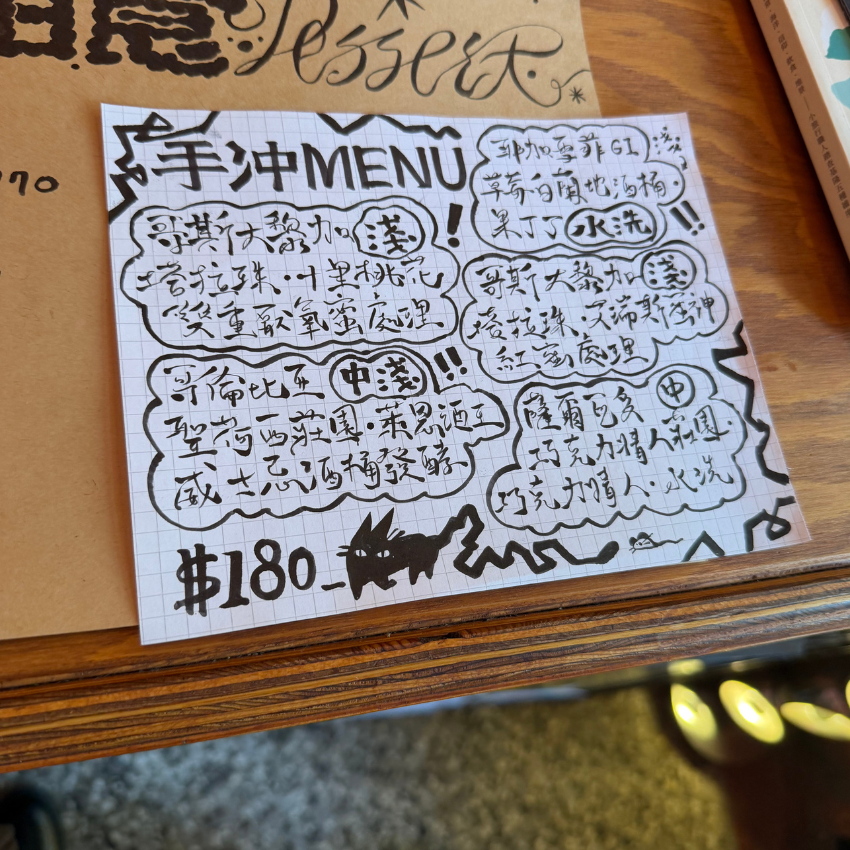 手冲MENU
哥斯大黎加 淺
塔拉珠·叶里桃花
雙重厭氧蜜處理
!
哥倫比亞 中淺
聖荷西莊園·萊恩酒王
威士忌酒桶發酵
!!
耶加雪菲G1 淺
草莓白蘭地酒桶·
果丁丁 水洗
!!
哥斯大黎加 淺
塔拉珠·艾瑞斯佳神
紅蜜處理
薩爾瓦多 中
巧克力情人莊園·
巧克力情人·水洗
$180
770